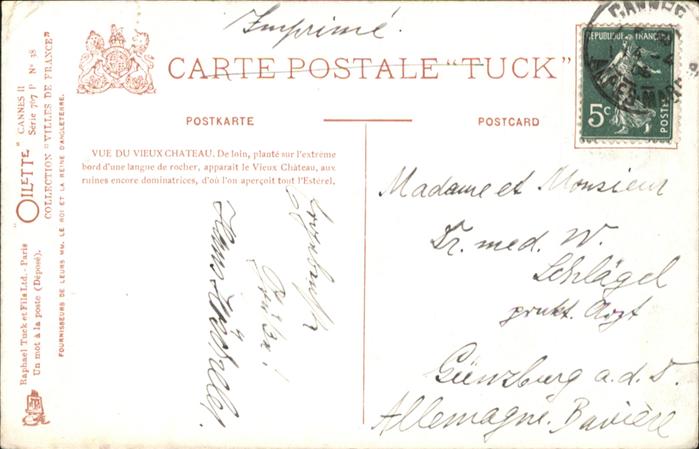 Imprimé.
CARTE POSTALE "TUCK"
POSTKARTE
POSTCARD
VUE DU VIEUX CHATEAU. De loin, planté sur l'extrême
bord d'une langue de rocher, apparait le Vieux Château, aux
ruines encore dominatrices, d'où l'on aperçoit tout l'Estérel.
"OILETTE" CANNES II
Série 767 P N° 38
COLLECTION "VILLES DE FRANCE"
FOURNISSEURS DE LEURS MM. LE ROI ET LA REINE D'ANGLETERRE.
Raphael Tuck et Fils Ltd. - Paris
Un mot à la poste (Déposé).
CANNES
REPUBLIQUE FRANÇAISE
5c
POSTES
Madame et Monsieur
Dr. med. W.
Schlägel
prakt. Arzt
Günzburg a. d. D.
Allemagne. Bavière